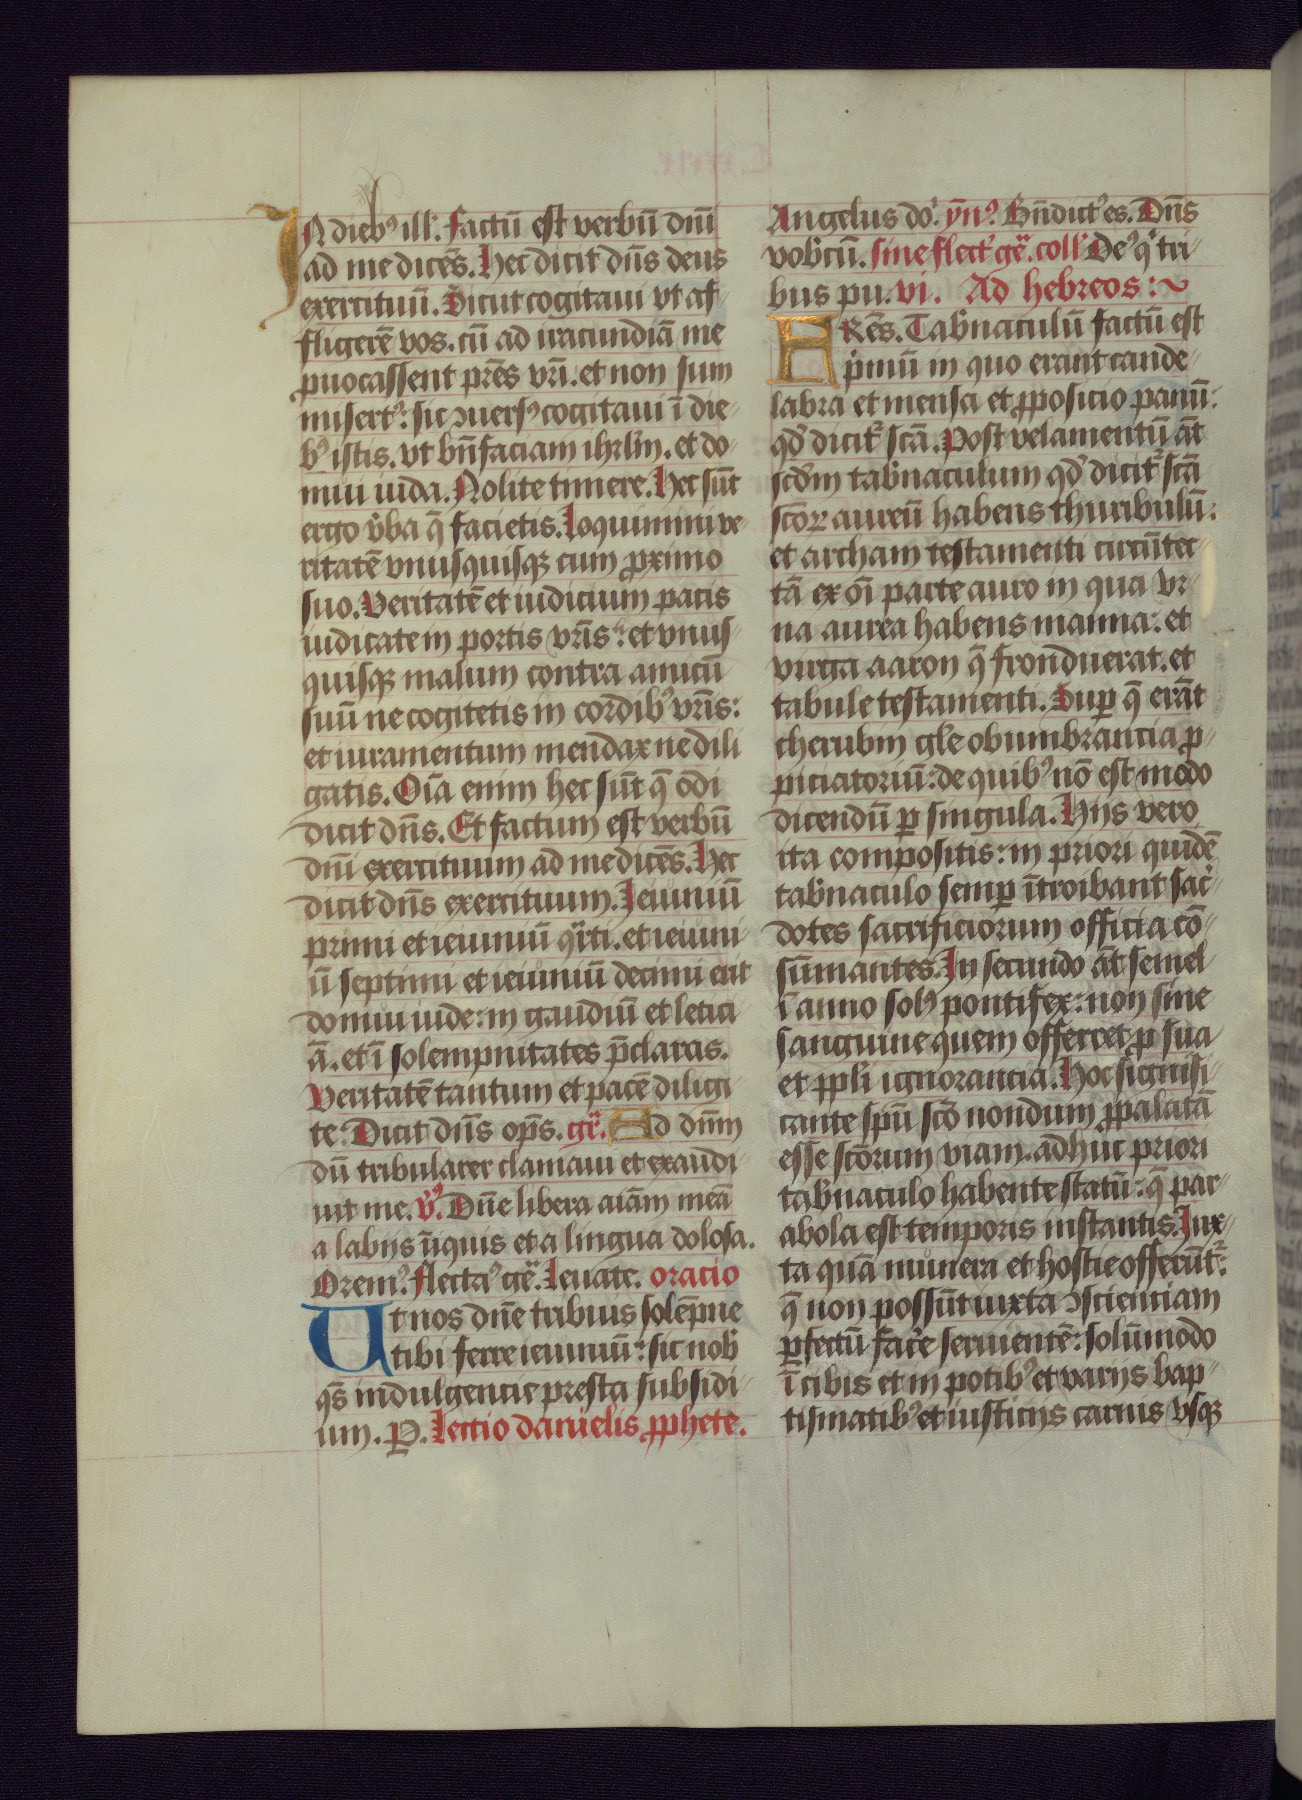 IN dieb᷒ ill'. factū est verbū dnī
ad me dicēs. Hec dicit dn̄s deus
exercituū. Sicut cogitaui vt af
fligerē vos. cū ad iracundiā me
ꝓuocassent pr̄es vr̄i. et non sum
misert᷒: sic ꝯuers᷒ cogitaui ī die-
b᷒ istis. vt bn̄faciam ihrl̄m. et do-
mui iuda. Nolite timere. Hec sūt
ergo v̓ba q̄ facietis. Loquimini ve-
ritatē vnusquisqꝫ cum ꝓximo
suo. Veritatē et iudicium pacis
iudicate in portis vr̄is: et vnus-
quisqꝫ malum contra amicū
suū ne cogitetis in cordib᷒ vr̄is:
et iuramentum mendax ne dili
gatis. Oīa enim hec sūt q̄ odi
dicit dn̄s. Et factum est verbū
dn̄i exercituum ad me dicēs. Hec
dicit dn̄s exercituum. Ieiuniū
primi et ieiuniū qͥnti. et ieiuni-
ū septimi et ieiuniū decimi erit
domui iude: in gaudiū et letici
ā. et ī solempnitates p̄claras.
Veritatē tantum et pacē diligi
te: Dicit dn̄s op̄s. gͬ. Ad dn̄m
dū tribularer clamaui et exaudi
uit me. v᷒. Dn̄e libera aīam meā
a labijs īiquis et a lingua dolosa.
Orem᷒. flecta᷒ ge͂. leuate. oracio
Ut nos dn̄e tribuis solēpne
tibi ferre ieiuniū: sic nob̓
qs̄ indulgencie presta subsidi-
um. P. lectio danielis ꝓphete.
Angelus do'. yn᷒. Bn̄dict᷒ es. Dn̄s
vob̓cū. sine flect' ge͂. coll' De᷒ qͥ tri-
bus pu. vi. Ad hebreos:~
FRēs. Tab̓naculū factū est
pͥmū in quo erant cande-
labra et mensa et ꝓposicio panū:
qd̄ dicit᷑ scā. Post velamentū āt
scdm̄ tab̓naculum qd̄ dicit᷑ scā
scōꝝ aureū habens thuribulū:
et archam testamenti circūtec
tā ex oī parte auro in qua vr-
na aurea habens manna: et
virga aaron q̄ fronduerat. et
tabule testamenti. Suꝑ q̄ erāt
cherubin gl̄e obumbrancia ꝓ-
piciatoriū: de quib᷒ nō est modo
dicendū ꝑ singula. Hijs vero
ita compositis: in priori quidē
tab̓naculo semꝑ ītroibant sac̓-
dotes sacrificiorum officia cō-
sūmantes. In secundo āt semel
ī anno sol᷒ pontifex: non sine
sanguine quem offerret ꝓ sua
et ppl̓i ignorancia. Hoc signifi-
cante spū scō nondum ꝓpalatā
esse scōrum viam. adhuc priori
tab̓naculo habente statū: q̄ par-
abola est temporis instantis. Iux-
ta quā munera et hostie offerūt᷑:
q̄ non possūt iuxta ꝯscienciam
ꝑfectū fac̓e seruientē: solūmodo
ī cibis et in potib᷒ et varijs bap-
tismatib᷒ et iusticijs carnis vsqꝫ